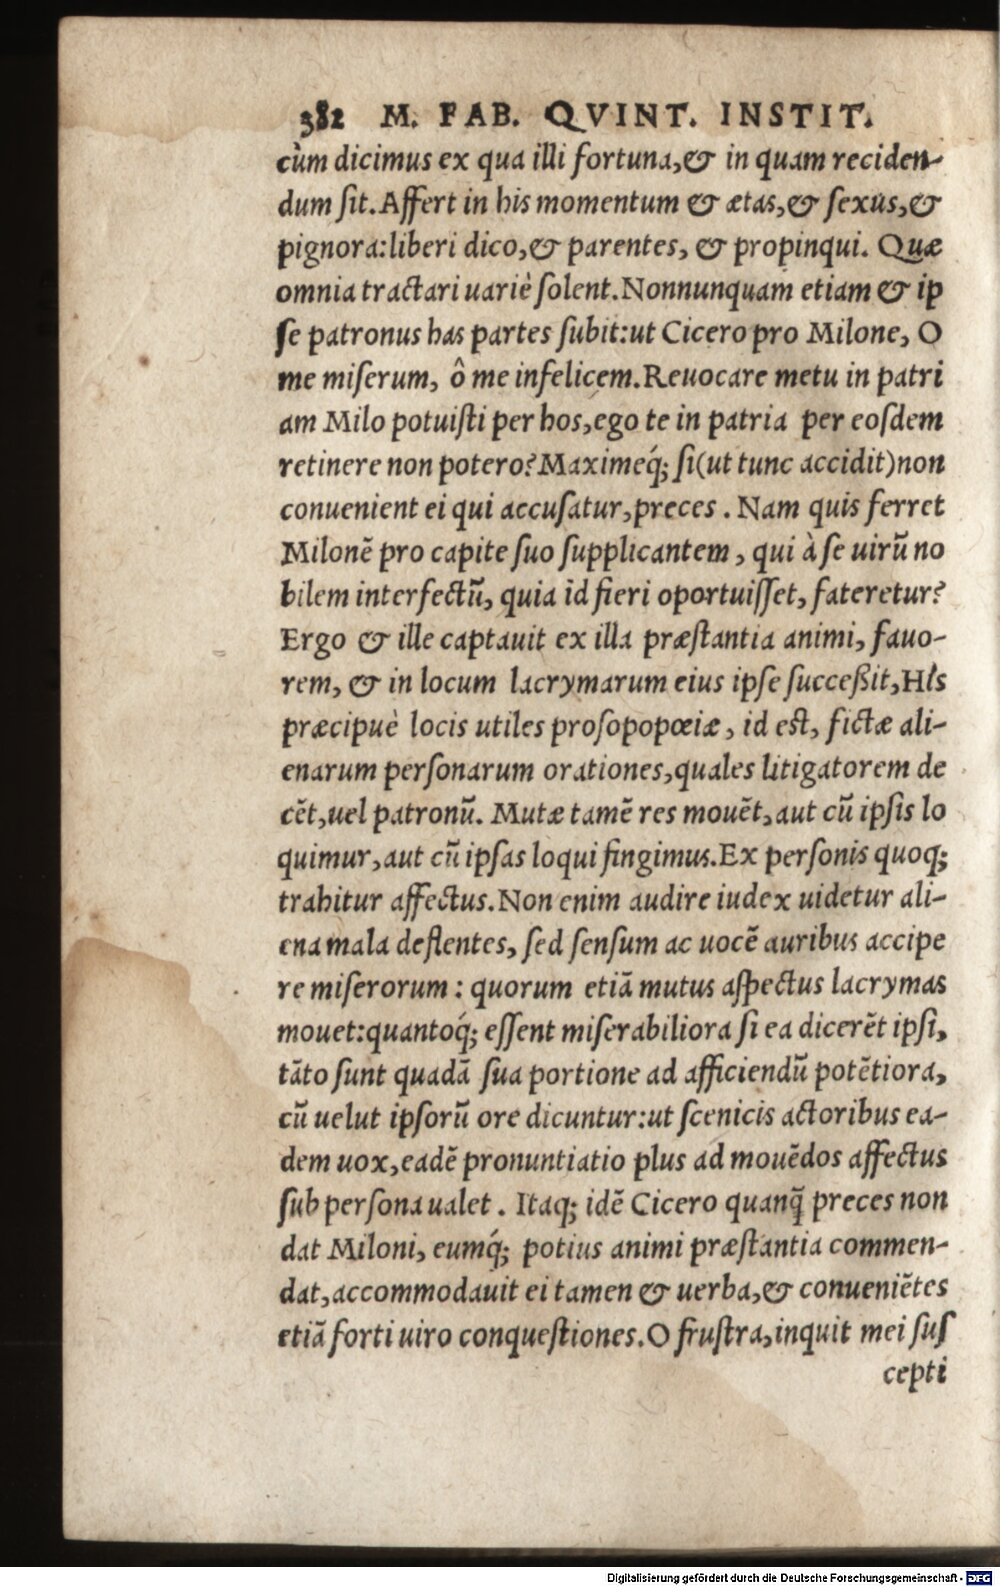 382 M. FAB. QVINT. INSTIT.
cùm dicimus ex qua illi fortuna,& in quam reciden-
dum ſit.Affert in his momentum & ætas,& ſexus,&
pignora:liberi dico,& parentes, & propinqui. Quæ
omnia tractari uariè ſolent.Nonnunquam etiam & ip
ſe patronus has partes ſubit:ut Cicero pro Milone, O
me miſerum, ô me infelicem.Reuocare metu in patri
am Milo potuiſti per hos,ego te in patria per eoſdem
retinere non potero?Maximeq́; ſi(ut tunc accidit)non
conuenient ei qui accuſatur,preces . Nam quis ferret
Milonē pro capite ſuo ſupplicantem , qui à ſe uirū no
bilem interfectū, quia id fieri oportuiſſet, fateretur?
Ergo & ille captauit ex illa præſtantia animi, fauo-
rem, & in locum lacrymarum eius ipſe ſucceßit,His
præcipuè locis utiles proſopopœiæ , id eſt, fictæ ali-
enarum perſonarum orationes,quales litigatorem de
cēt,uel patronū. Mutæ tamē res mouēt,aut cū ipſis lo
quimur,aut cū ipſas loqui fingimus.Ex perſonis quoq;
trahitur affectus.Non enim audire iudex uidetur ali-
ena mala deflentes, ſed ſenſum ac uocē auribus accipe
re miſerorum : quorum etiā mutus aſpectus lacrymas
mouet:quantoq́; eſſent miſerabiliora ſi ea dicerēt ipſi,
tāto ſunt quadā ſua portione ad afficiendū potētiora,
cū uelut ipſorū ore dicuntur:ut ſcenicis actoribus ea-
dem uox,eadē pronuntiatio plus ad mouēdos affectus
ſub perſona ualet . Itaq; idē Cicero quanq̄ preces non
dat Miloni, eumq́; potius animi præſtantia commen-
dat,accommodauit ei tamen & uerba,& conueniētes
etiā forti uiro conqueſtiones.O fruſtra,inquit mei ſuſ
cepti
Digitalisierung gefördert durch die Deutsche Forschungsgemeinschaft - DFG